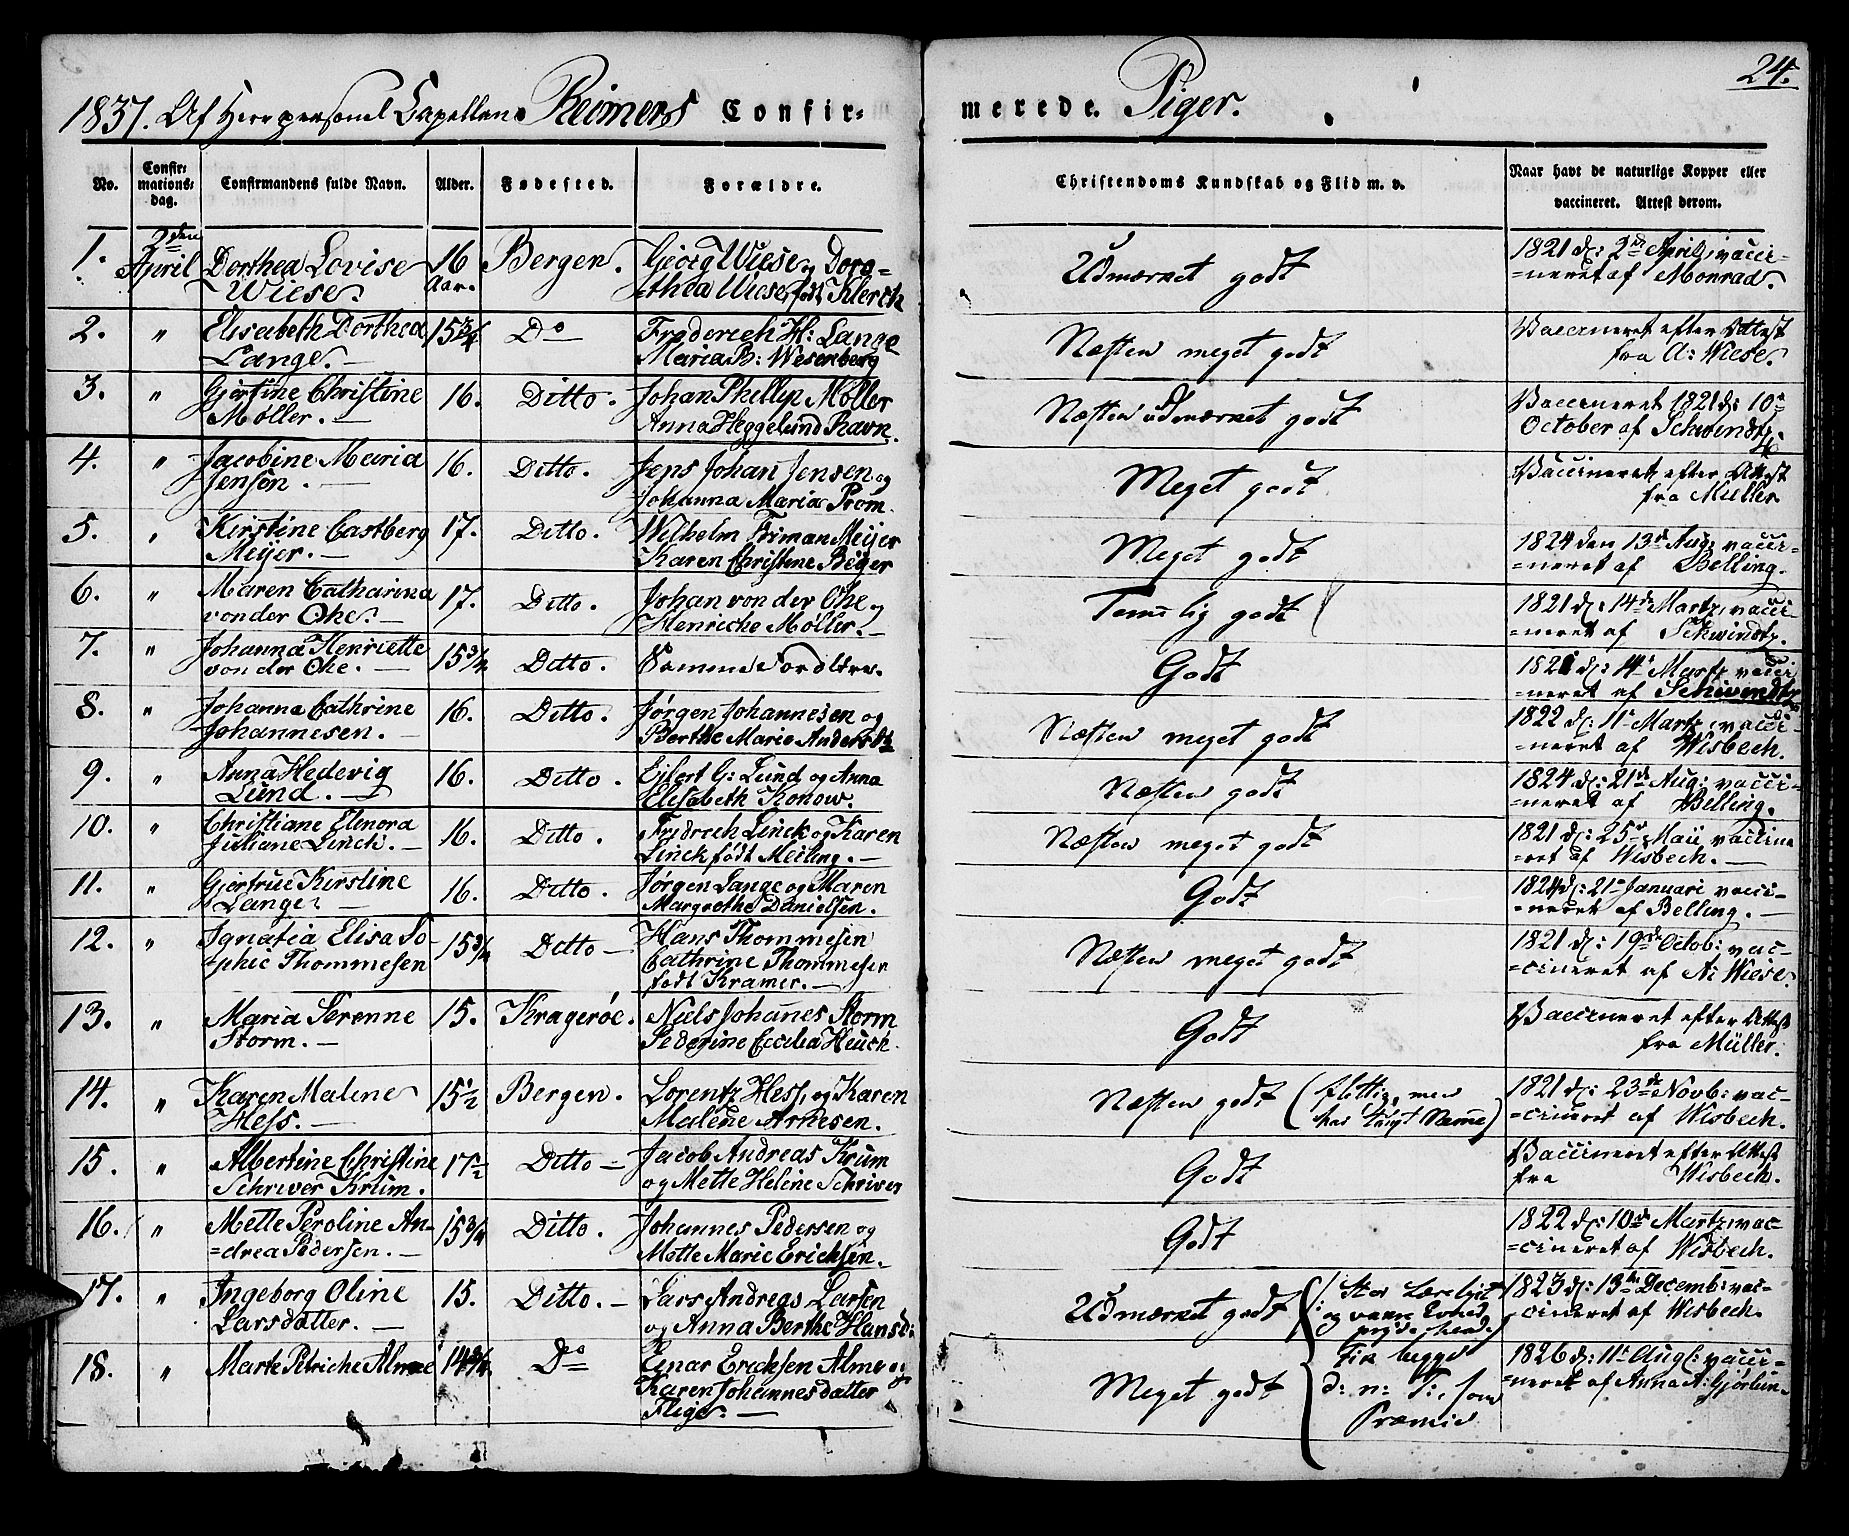 24.
1837. Af Herr personel Capellan Reimers Confirmerede. Piger.
No. Confir-mations-dag. Confirmandens fulde Navn. Alder. Fødested. Forældre. Christendoms Kundskab og Flid m. v. Naar havt de naturlige Kopper eller vaccineret. Attest derom.
1. 2den April Dorthea Lovise 16 Bergen. Georg Wiese og Doro= Udmærket godt 1821 d: 2de April, vacci=
Wiese. Aar. thea Wiese, født Klerck =neret af Monrad.
2. " Elisabeth Dorthea 15 3/4 Do Frederich H: Lange Næsten meget godt Vaccineret efter Attest
Lange. — Maria B: Wesenberg fra A: Wiese.
3. " Gjertine Christine 16. Ditto. Johan Phellip Møller Næsten udmærket godt Vaccineret 1821 d: 10de
Møller. — Anna Heggelund Ravn. October af Schwindtz.
4. " Jacobine Maria 16. Ditto. Jens Johan Jensen og Meget godt Vaccineret efter Attest
Jensen. — Johanna Maria Prom. fra Müller
5. " Kirstine Castberg 17. Ditto. Wilhelm Firman Meijer Meget godt 1824 den 13de Aug: vacci=
Meijer. — Karen Christine Böger =neret af Belling.
6. " Maren Catharina 17. Ditto. Johan von der Ohe og Temelig godt 1821 d: 14de Martz, vacci=
von der Ohe. — Henriche Møller. — =neret af Schwindtz.
7. " Johanna Henriette 15 3/4 Ditto. Samme Forældre. Godt 1821 d: 14de Martz vacci
von der Ohe. — =neret af Schwindtz
8. " Johanna Cathrine 16. Ditto. Jørgen Johannesen og Næsten meget godt 1822 d: 11te Martz, vacci=
Johannesen. — Berthe Marie Andersdr =neret af Wisbech.
9. " Anna Hedevig 16. Ditto. Eilert G: Lund og Anna Næsten godt 1824 d: 21de Aug: vacci=
Lund. — Elisabeth Konow. =neret af Belling.
10. " Christiane Elenora 16. Ditto. Fredrech Linck og Karen Næsten meget godt 1821 d: 25de Maii, vaccine
Juliane Linck. — Linck født Meiling. — =ret af Wisbech. —
11. " Gjertrue Kirstine 16. Ditto. Jørgen Lange og Maren Godt 1824 d: 21de Januari vacci=
Lange. — Margrethe Danielsen. =neret af Belling. —
12. " Ignatia Elisa So= 15 3/4 Ditto — Hans Thommesen Næsten meget godt 1821 d: 19de Octob: vac=
phie Thommesen Cathrine Thommesen =cineret af A: Wiese.
født Kramer. —
13. " Maria Serenne 15. Kragerøe. Niels Johanes Storm Godt Vaccineret efter Attest
Storm. — Pederine Cecilia Heuch. fra Müller.
14. " Karen Malene 15 1/2 Bergen. Lorentz Hess, og Karen Næsten godt (flittig, men 1821 d: 23de Novb: vac=
Hess. — Malene Arnesen. har tungt Nemme) =cineret af Wisbech.
15. " Albertine Christine 17 1/2 Ditto — Jacob Andreas Krüm Godt Vaccineret efter Attest
Schriver Krüm. og Mette Helene Schriver fra Wisbech.
16. " Mette Peroline An= 15 3/4 Ditto. Johannes Pedersen og Godt 1822 d: 10de Martz, vac=
=drea Pedersen. — Mette Marie Erichsen. =cineret af Wisbech.
17. " Ingeborg Oline 15. Ditto. — Lars Andreas Larsen Udmærket godt Stor Lærelyst 1823 d: 13de Decemb: vac=
Larsdatter. — og Anna Berthe Hansd: og =cineret af Wisbech.
18. " Marte Petriche Alme 14 3/4 Do Einar Erichsen Alme og Meget godt Fik begge 1826 d: 11te Aug: vacci=
Karen Johannesdatter d: n: T:, som =neret af Anna A: Gjørlin.
Flige. — Præmie